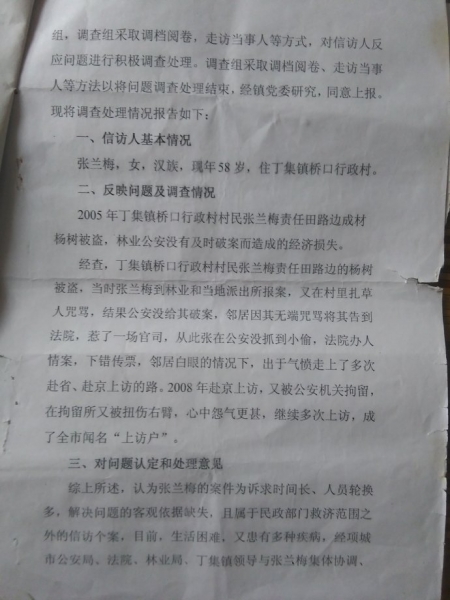 组，调查组采取调档阅卷，走访当事人等方式，对信访人反
应问题进行积极调查处理。调查组采取调档阅卷、走访当事
人等方法以将问题调查处理结束，经镇党委研究，同意上报。
现将调查处理情况报告如下：
一、信访人基本情况
张兰梅，女，汉族，现年58岁，住丁集镇桥口行政村。
二、反映问题及调查情况
2005年丁集镇桥口行政村村民张兰梅责任田路边成材
杨树被盗，林业公安没有及时破案而造成的经济损失。
经查，丁集镇桥口行政村村民张兰梅责任田路边的杨树
被盗，当时张兰梅到林业和当地派出所报案，又在村里扎草
人咒骂，结果公安没给其破案，邻居因其无端咒骂将其告到
法院，惹了一场官司，从此张在公安没抓到小偷，法院办人
情案，下错传票，邻居白眼的情况下，出于气愤走上了多次
赴省、赴京上访的路。2008年赴京上访，又被公安机关拘留，
在拘留所又被扭伤右臂，心中怨气更甚，继续多次上访，成
了全市闻名“上访户”。
三、对问题认定和处理意见
综上所述，认为张兰梅的案件为诉求时间长、人员轮换
多，解决问题的客观依据缺失，且属于民政部门救济范围之
外的信访个案，目前，生活困难，又患有多种疾病，经项城
市公安局、法院、林业局、丁集镇领导与张兰梅集体协调、